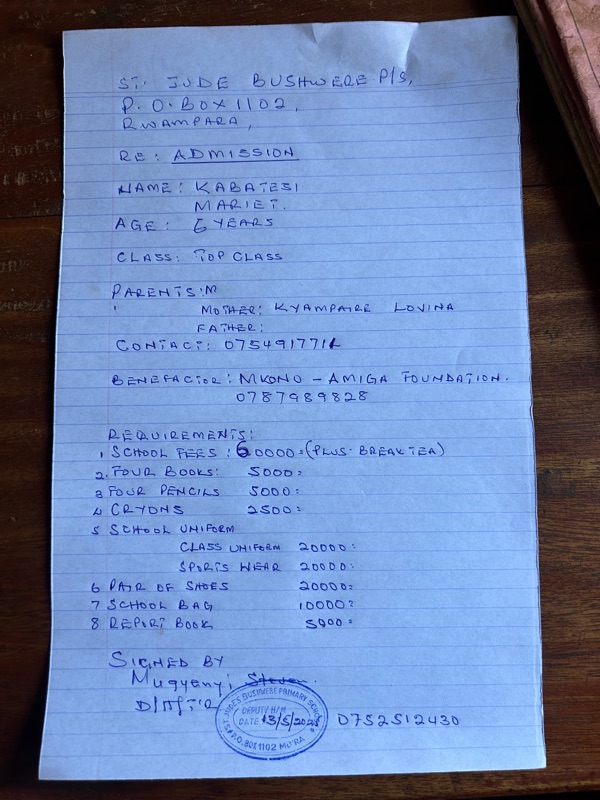 ST. JUDE BUSHWERE P/S,
P.O.BOX 1102,
RWAMPARA,
RE: ADMISSION
NAME: KABATESI
MARIET.
AGE: 6 YEARS
CLASS: TOP CLASS
PARENTS: M
MOTHER: KYAMPAIRE LOVINA
FATHER:
CONTACT:
BENEFACTOR: MKONO - AMIGA FOUNDATION.
0787989828
REQUIREMENTS:
1 SCHOOL FEES: 60000=(PLUS BREAK TEA)
2. FOUR BOOKS: 5000=
3 FOUR PENCILS 5000=
4 CRYONS 2500=
5 SCHOOL UNIFORM
CLASS UNIFORM 20000=
SPORTS WEAR 20000=
6 PAIR OF SHOES 20000=
7 SCHOOL BAG 10000=
8 REPORT BOOK 5000=
SIGNED BY
Mugyenyi Steven
ST. JUDE'S BUSHWERE PRIMARY SCHOOL
DEPUTY H/M
DATE
P.O.BOX 1102 MB'RA
0752512430